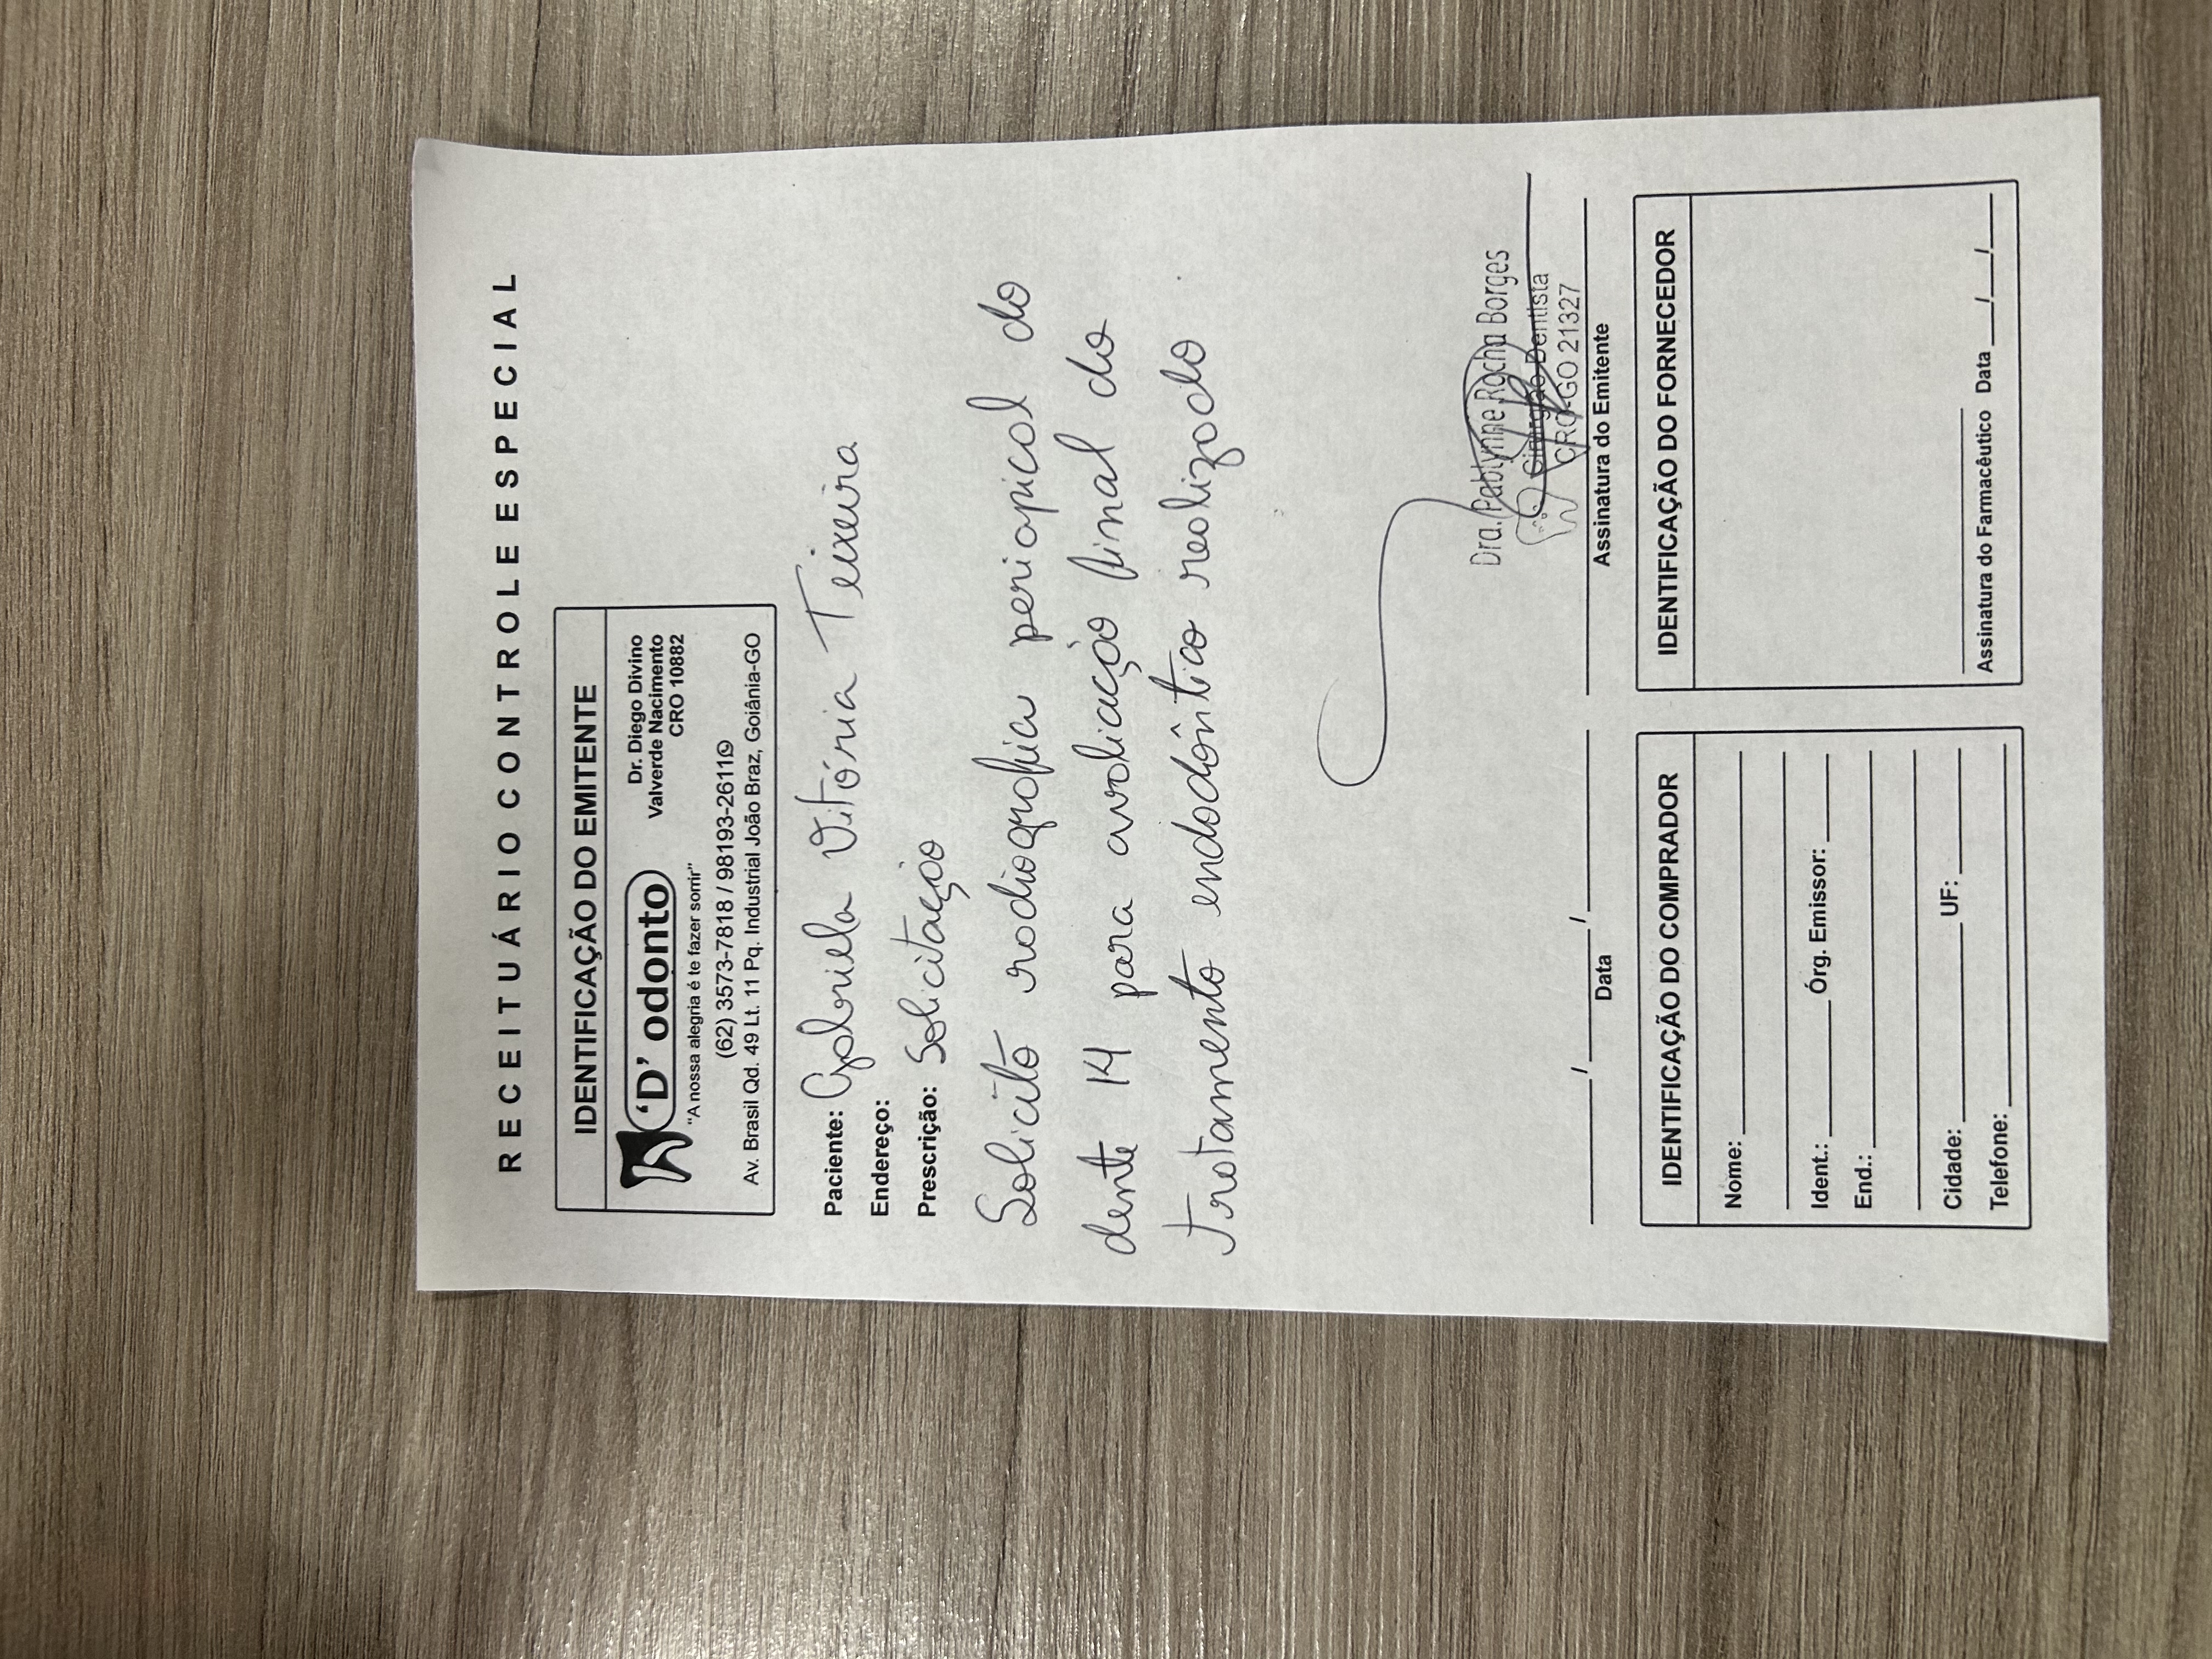 RECEITUÁRIO CONTROLE ESPECIAL
IDENTIFICAÇÃO DO EMITENTE
'D' odonto
"A nossa alegria é te fazer sorrir"
Dr. Diego Divino
Valverde Nacimento
CRO 10882
(62) 3573-7818 / 98193-2611
Av. Brasil Qd. 49 Lt. 11 Pq. Industrial João Braz, Goiânia-GO
Paciente: Gabriela Vitória Teixeira
Endereço:
Prescrição: Solicitação
Solicito radiografia periapical do
dente 14 para avaliação final do
tratamento endodôntico realizado
Dra. Pablynne Rocha Borges
Cirurgião Dentista
CRO-GO 21327
____/____/____
Data
Assinatura do Emitente
IDENTIFICAÇÃO DO COMPRADOR
Nome:
Ident.: Órg. Emissor:
End.:
Cidade: UF:
Telefone:
IDENTIFICAÇÃO DO FORNECEDOR
Assinatura do Farmacêutico Data __/__/__